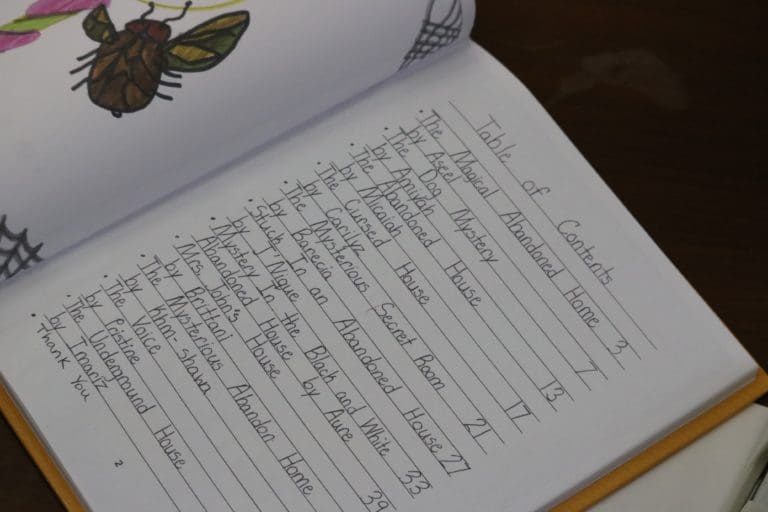 Table of Contents
• The Magical Abandoned Home 3
by Aseel
• The Dog Mystery 7
by Amiyah
• The Abandoned House 13
by Micaiah
• The Cursed House 17
by Carilyz
• The Mysterious Secret Room 21
by Barecia
• Stuck In an Abandoned House 27
by J'Nique
• Mystery In the Black and White 33
Abandoned House by Aure
• Mrs. John's House 39
by Brittani
• The Mysterious Abandon Home
by
• The Voice
by Pristine
• The Underground House
by Imariz
• Thank You
2